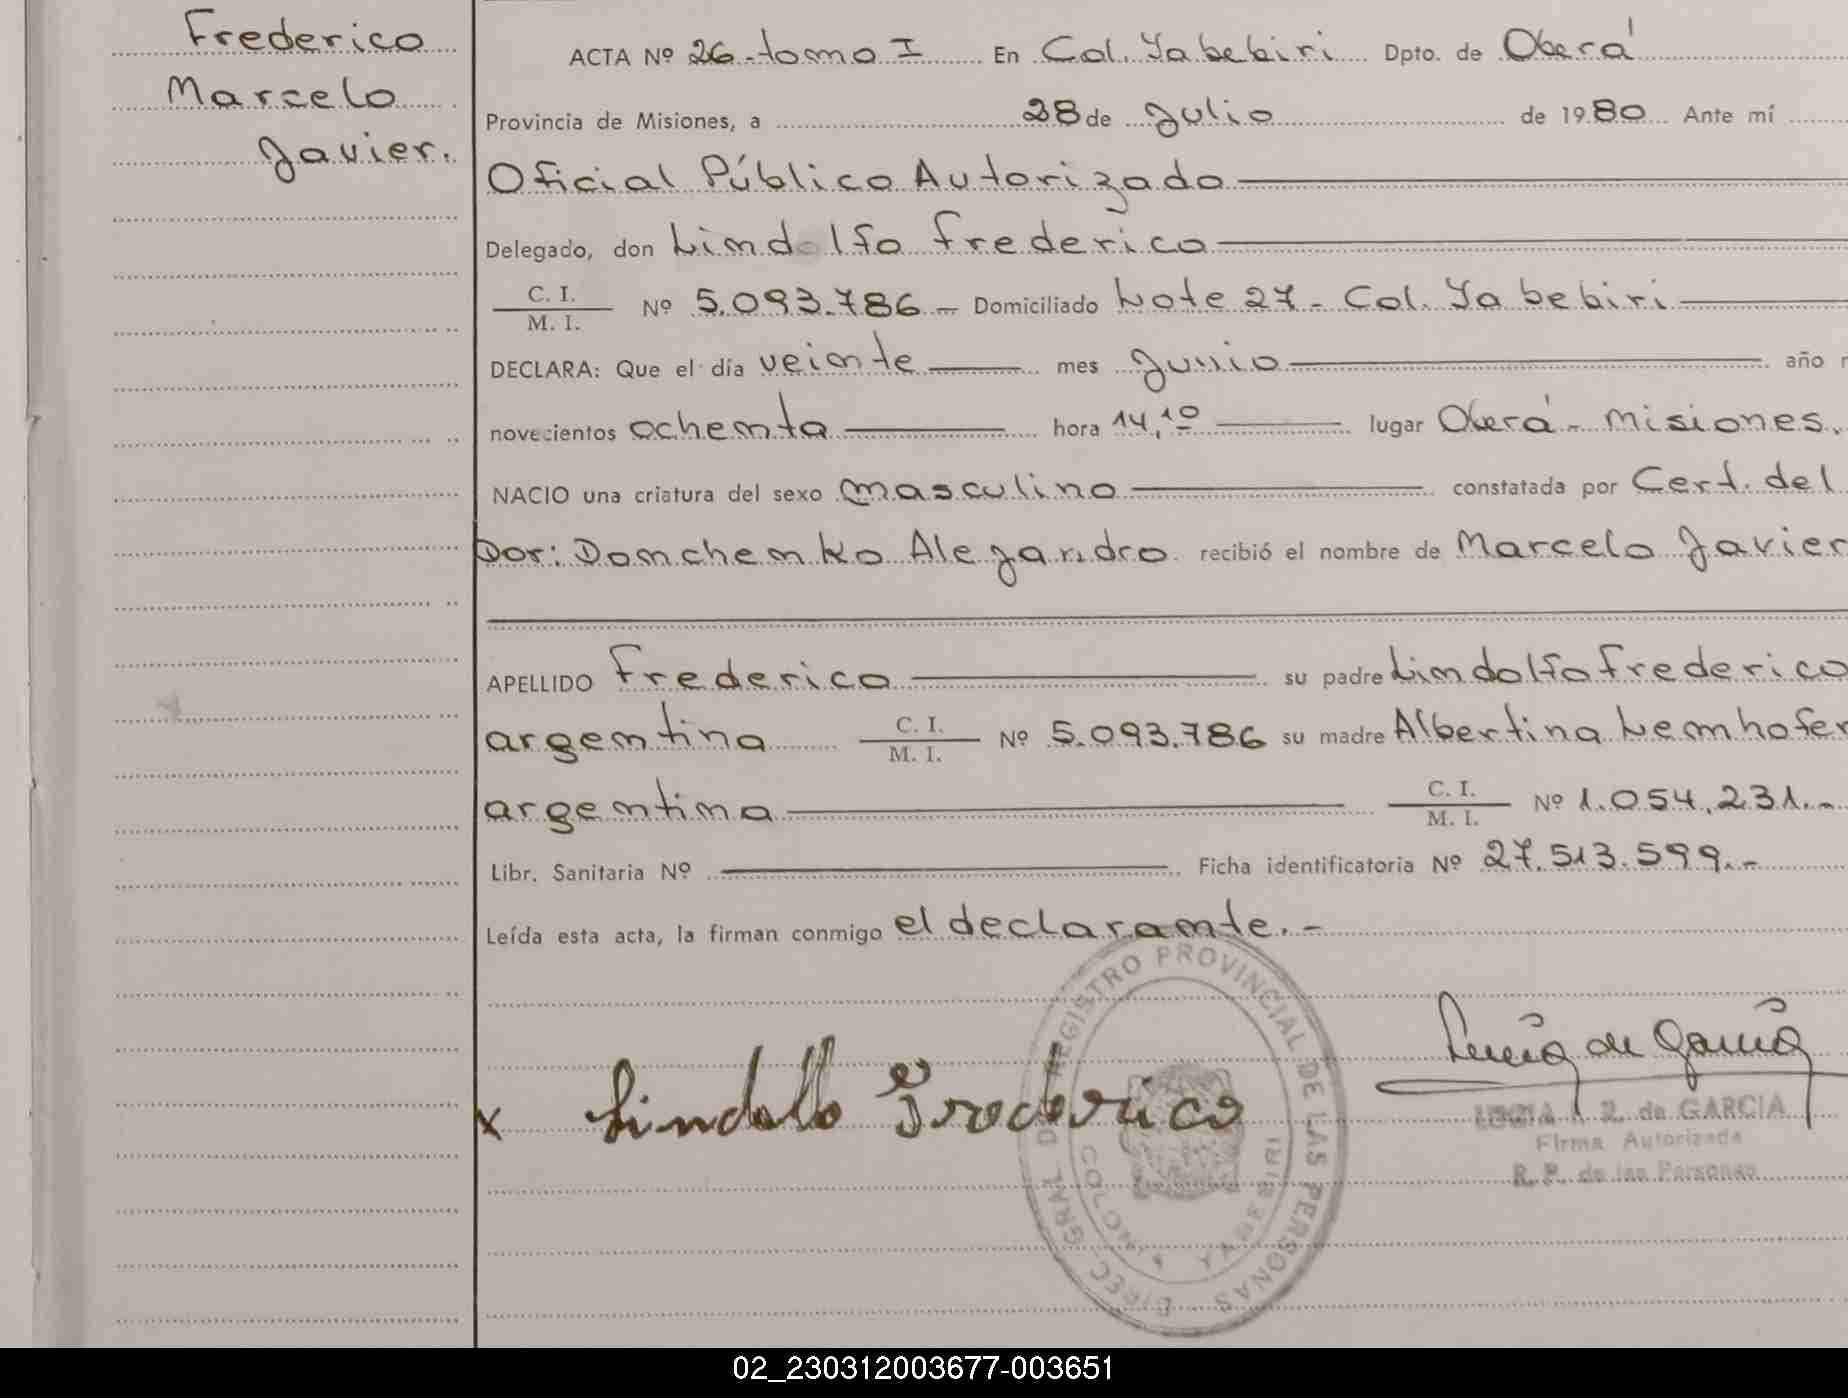 Frederico
Marcelo
Javier.
ACTA Nº 26-tomo I En Col. Yabebiri Dpto. de Oberá
Provincia de Misiones, a 28 de Julio de 1980 Ante mí
Oficial Público Autorizado
Delegado, don Lindolfo Frederico
C. I.
M. I. Nº 5.093.786- Domiciliado Lote 27- Col. Yabebiri
DECLARA: Que el día veinte mes Junio año
novecientos ochenta hora 14,10 lugar Oberá- Misiones.
NACIO una criatura del sexo masculino constatada por Cert. del
Dor: Domchenko Alejandro recibió el nombre de Marcelo Javier
APELLIDO Frederico su padre Lindolfo Frederico
argentina C. I.
M. I. Nº 5.093.786 su madre Albertina Lemhofer
argentina C. I.
M. I. Nº 1.054.231.-
Libr. Sanitaria Nº Ficha identificatoria Nº 27.513.599.-
Leída esta acta, la firman conmigo el declarante.-
x Lindolfo Frederico
DIREC. GRAL. DE REGISTRO PROVINCIAL DE LAS PERSONAS
COLONIA YABEBIRI
de García
R. de GARCIA
Firma Autorizada
R. P. de las Personas
02_230312003677-003651